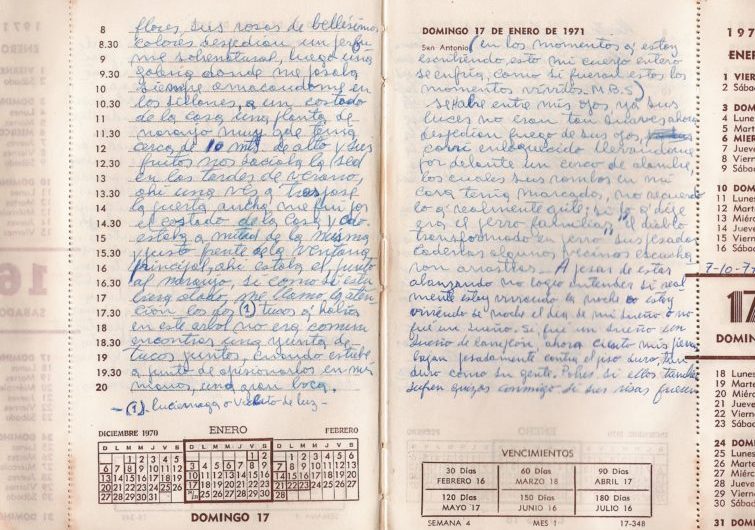 8 flores sus rosas de bellisimos
8.30 colores despedian un perfu
9 me sobrenatural, luego una
9.30 galeria donde me posaba
10 siempre amacandome en
10.30 los sillones, a un costado
11 de la casa una planta de
11.30 naranjo muy que tenia
12 cerca de 10 mts de alto y sus
12.30 frutos nos saciaba la sed
13 en las tardes de verano,
13.30 ahi una vez a
14 la puerta ancha, me fui por
14.30 el costado de la casa y cdo.
15 estaba a mitad de la misma
15.30 y justo frente de la ventana
16 principal, ahi estaba el junto
16.30 al naranjo, si como si estu
17 biera atado, me llamo la aten
17.30 ción los dos (1) tucos q' habia
18 en este arbol no era comun
18.30 encontrar una yunta de
19 tucos juntos, cuando estube
19.30 a punto de apricionarlos en mis
20 manos, una gran boca.
-(1) luciernaga o vichito de luz-
DICIEMBRE 1970 ENERO FEBRERO
D L M M J V S
1 2 3 4 5
6 7 8 9 10 11 12
13 14 15 16 17 18 19
20 21 22 23 24 25 26
27 28 29 30 31
D L M M J V S
1 2
3 4 5 6 7 8 9
10 11 12 13 14 15 16
17 18 19 20 21 22 23
24 25 26 27 28 29 30
31
D L M M J V S
1 2 3 4 5 6
7 8 9 10 11 12 13
14 15 16 17 18 19 20
21 22 23 24 25 26 27
28
DOMINGO 17
DOMINGO 17 DE ENERO DE 1971
San Antonio (en los momentos q' estoy
escribiendo, esto mi cuerpo entero
se enfria, como si fueran estos los
momentos vividos M.B.S)
Se abre entre mis ojos, ya sus
luces no eran tan suaves, ahora
despedian fuego de sus ojos,
corri enloquecido llevandome
por delante un cerco de alambre,
los cuales sus rombos en mi
cara tenia marcados, no recuerdo
lo q' realmente grite; si lo q' dije
era el perro familiar, el diablo
transformado en perro sus pesadas
cadenas algunos vecinos escucha
ron arrastrar - A pesar de estar
abanzando no logro entender si real
mente estoy viviendo la noche o estoy
viviendo de noche el dia de mi sueño o no
fué un sueño. Si fué un sueño con
sueño de canción, ahora cuanto mis pies
bajan pesadamente contra el piso duro, tan
duro como su gente. Pobres, si ellos tambien
sufren quizas conmigo si sus risas fueran
VENCIMIENTOS
30 Días FEBRERO 16
60 Días MARZO 18
90 Días ABRIL 17
120 Días MAYO 17
150 Días JUNIO 16
180 Días JULIO 16
SEMANA 4 MES 1 17-348
197
ENER
1 VIER
2 Sábad
3 DOMI
4 Lunes
5 Marte
6 MIER
7 Jueve
8 Viern
9 Sábad
10 DOMI
11 Lunes
12 Marte
13 Miérc
14 Jueve
15 Viern
16 Sábad
7-10-7
17
DOMIN
18 Lunes
19 Marte
20 Miérc
21 Jueve
22 Viern
23 Sábad
24 DOMI
25 Lunes
26 Marte
27 Miérc
28 Jueve
29 Viern
30 Sábad
31 DOMI